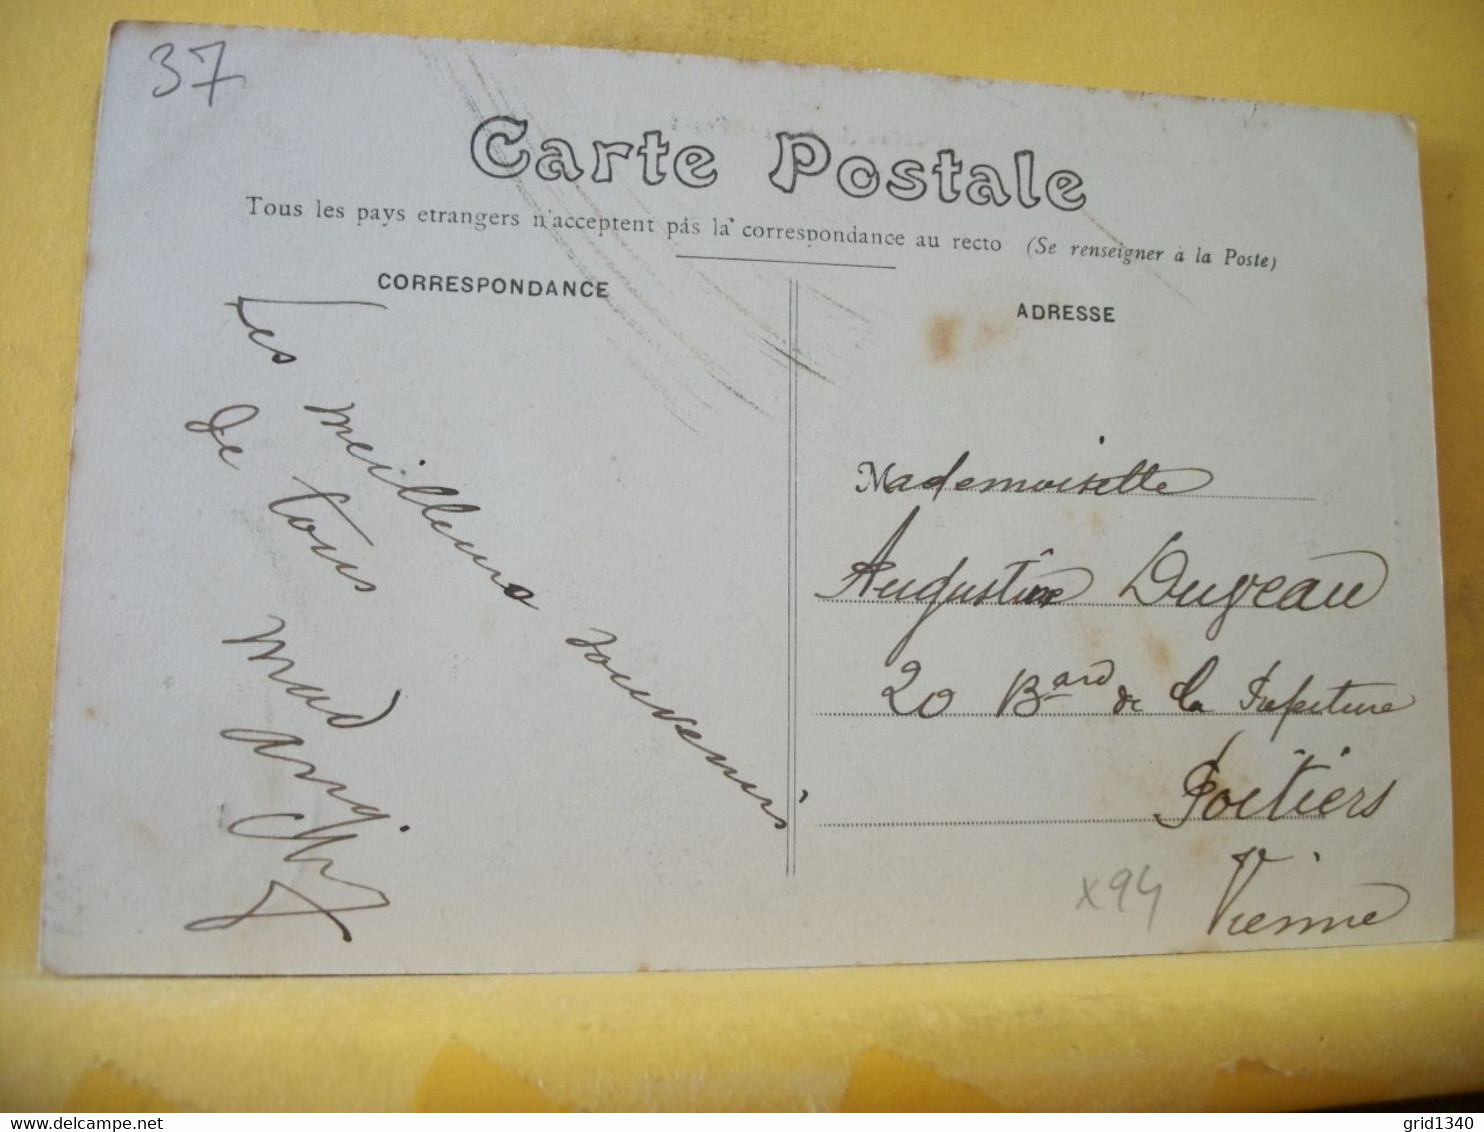 37
Carte Postale
Tous les pays etrangers n'acceptent pas la correspondance au recto (Se renseigner à la Poste)
CORRESPONDANCE
Les meilleurs souvenirs
de tous
Mad
ADRESSE
Mademoiselle
Augustine Dugeau
20 Bard de la Préfecture
Poitiers
Vienne
x94
grid1340